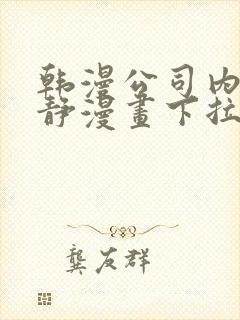 韩漫公司内
静漫畫下拉
龔友群